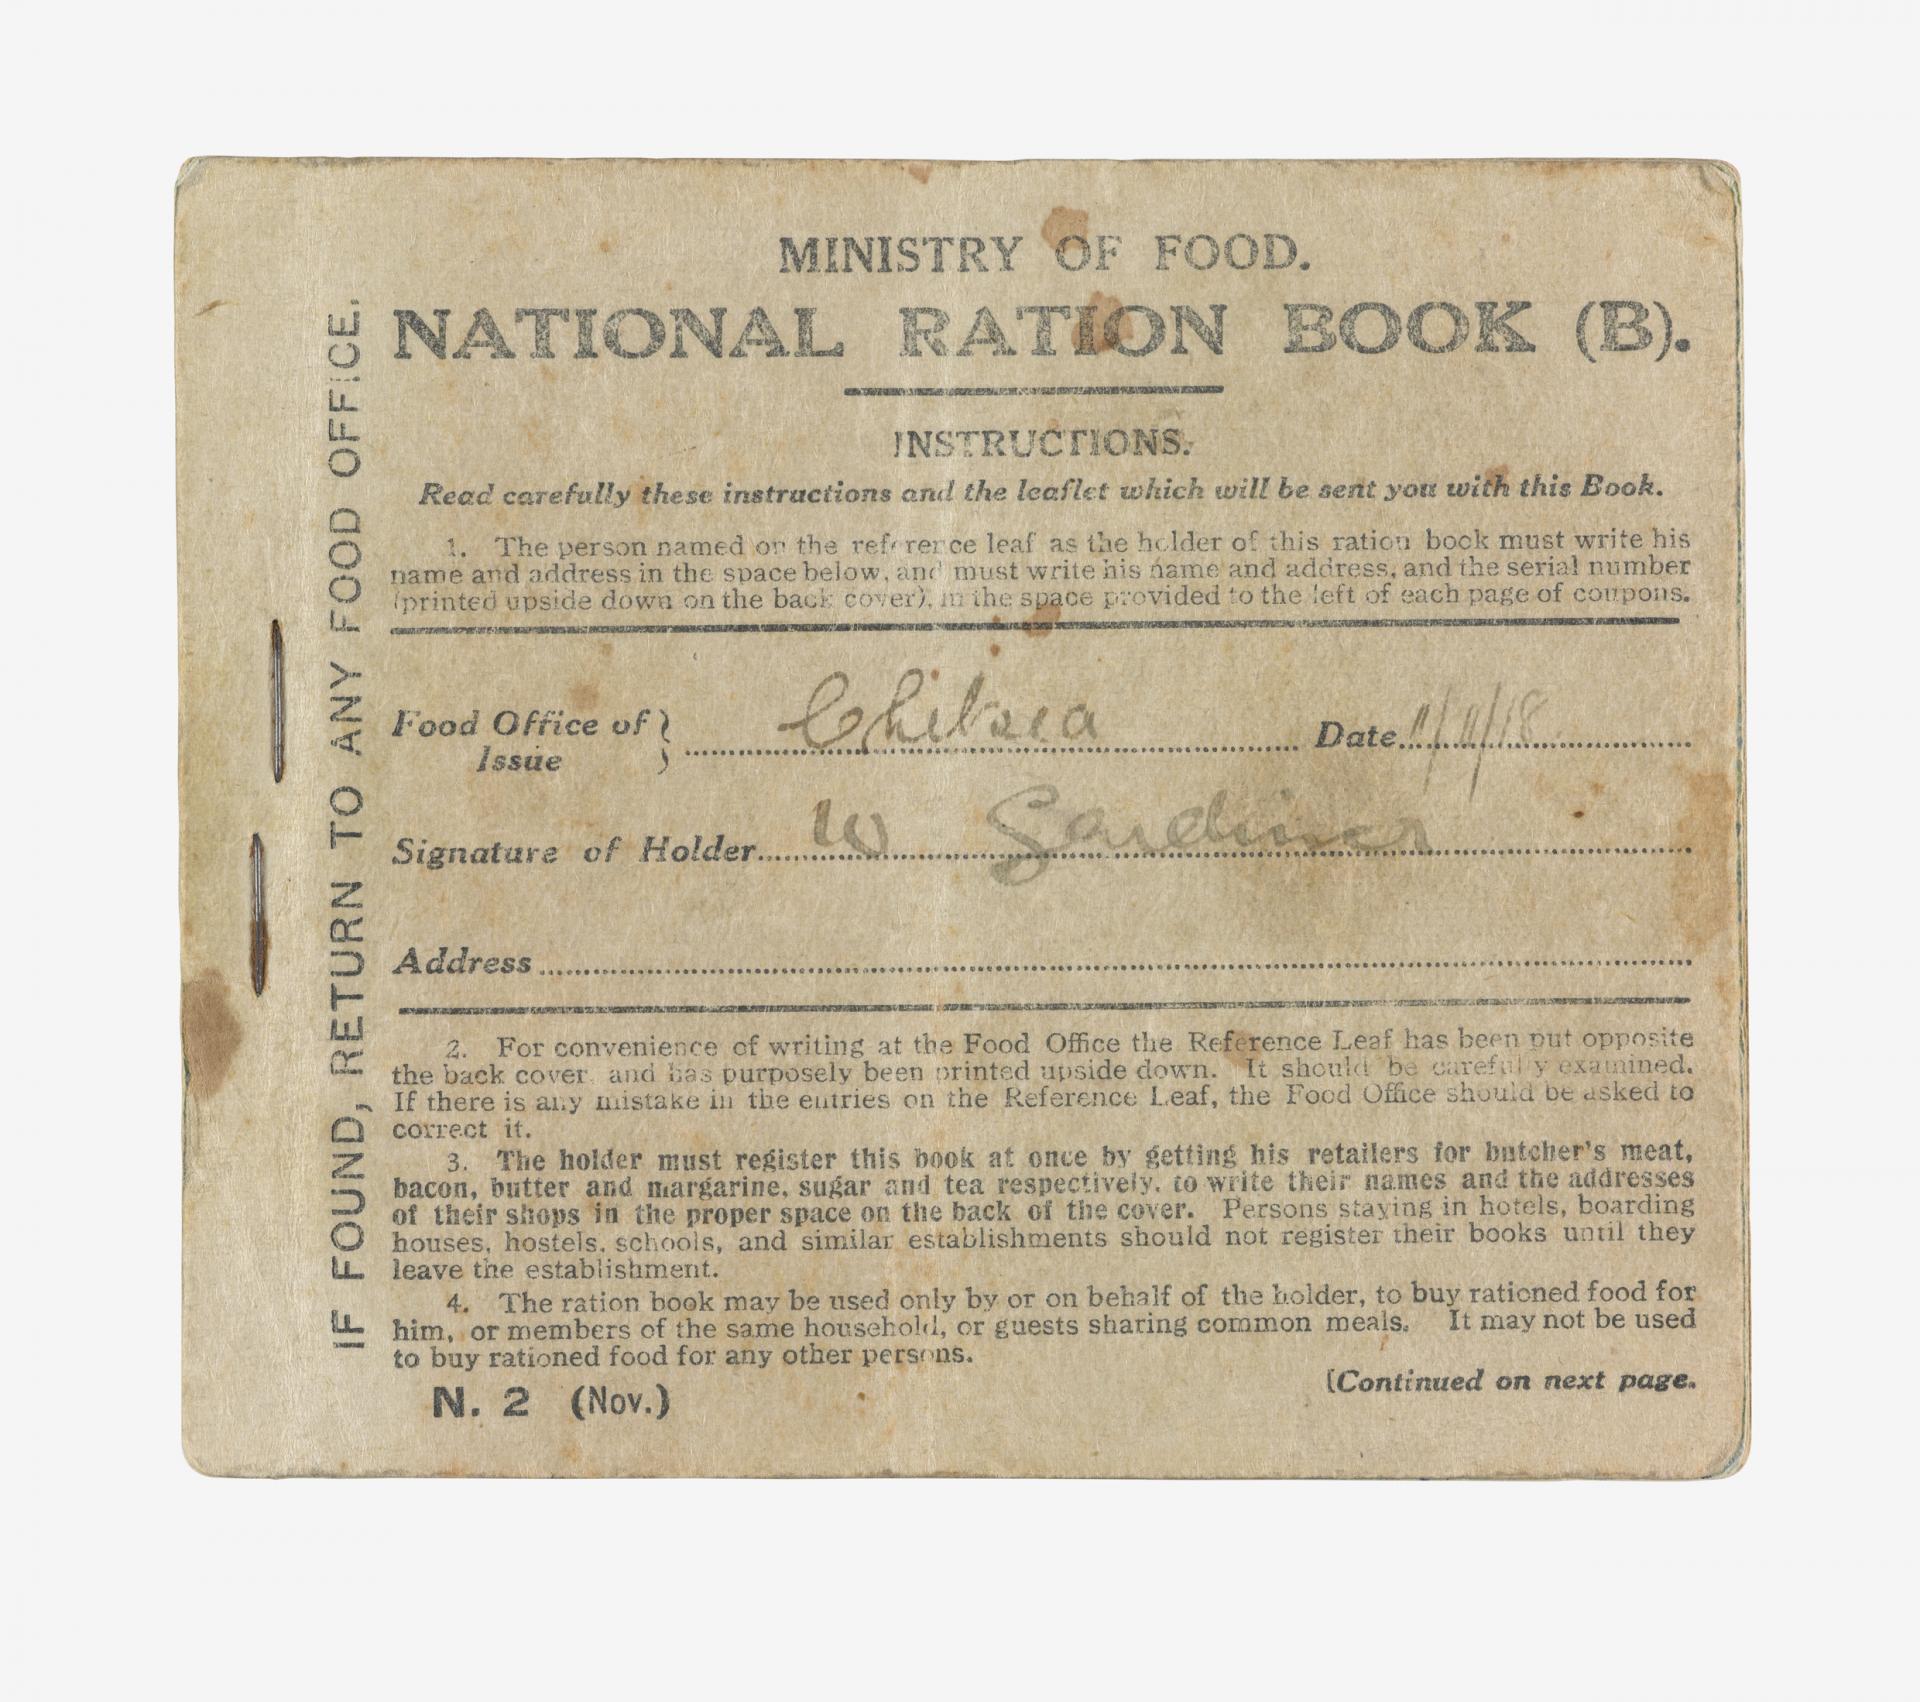 MINISTRY OF FOOD.
NATIONAL RATION BOOK (B).
INSTRUCTIONS.
Read carefully these instructions and the leaflet which will be sent you with this Book.
1. The person named on the reference leaf as the holder of this ration book must write his
name and address in the space below, and must write his name and address, and the serial number
(printed upside down on the back cover), in the space provided to the left of each page of coupons.
Food Office of } Chelsea Date 11/11/18
Issue
Signature of Holder W Gardiner
Address
2. For convenience of writing at the Food Office the Reference Leaf has been put opposite
the back cover, and has purposely been printed upside down. It should be carefully examined.
If there is any mistake in the entries on the Reference Leaf, the Food Office should be asked to
correct it.
3. The holder must register this book at once by getting his retailers for butcher's meat,
bacon, butter and margarine, sugar and tea respectively, to write their names and the addresses
of their shops in the proper space on the back of the cover. Persons staying in hotels, boarding
houses, hostels, schools, and similar establishments should not register their books until they
leave the establishment.
4. The ration book may be used only by or on behalf of the holder, to buy rationed food for
him, or members of the same household, or guests sharing common meals. It may not be used
to buy rationed food for any other persons.
[Continued on next page.
N. 2 (Nov.)
IF FOUND, RETURN TO ANY FOOD OFFICE.